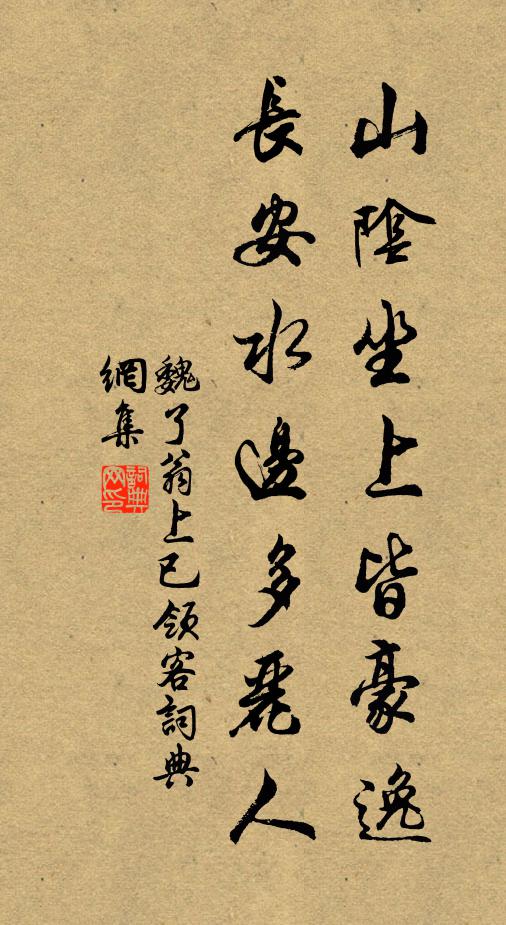 山陰坐上皆豪逸
長安水邊多麗人
魏了翁上巳領客詞典
網集
詞典網印